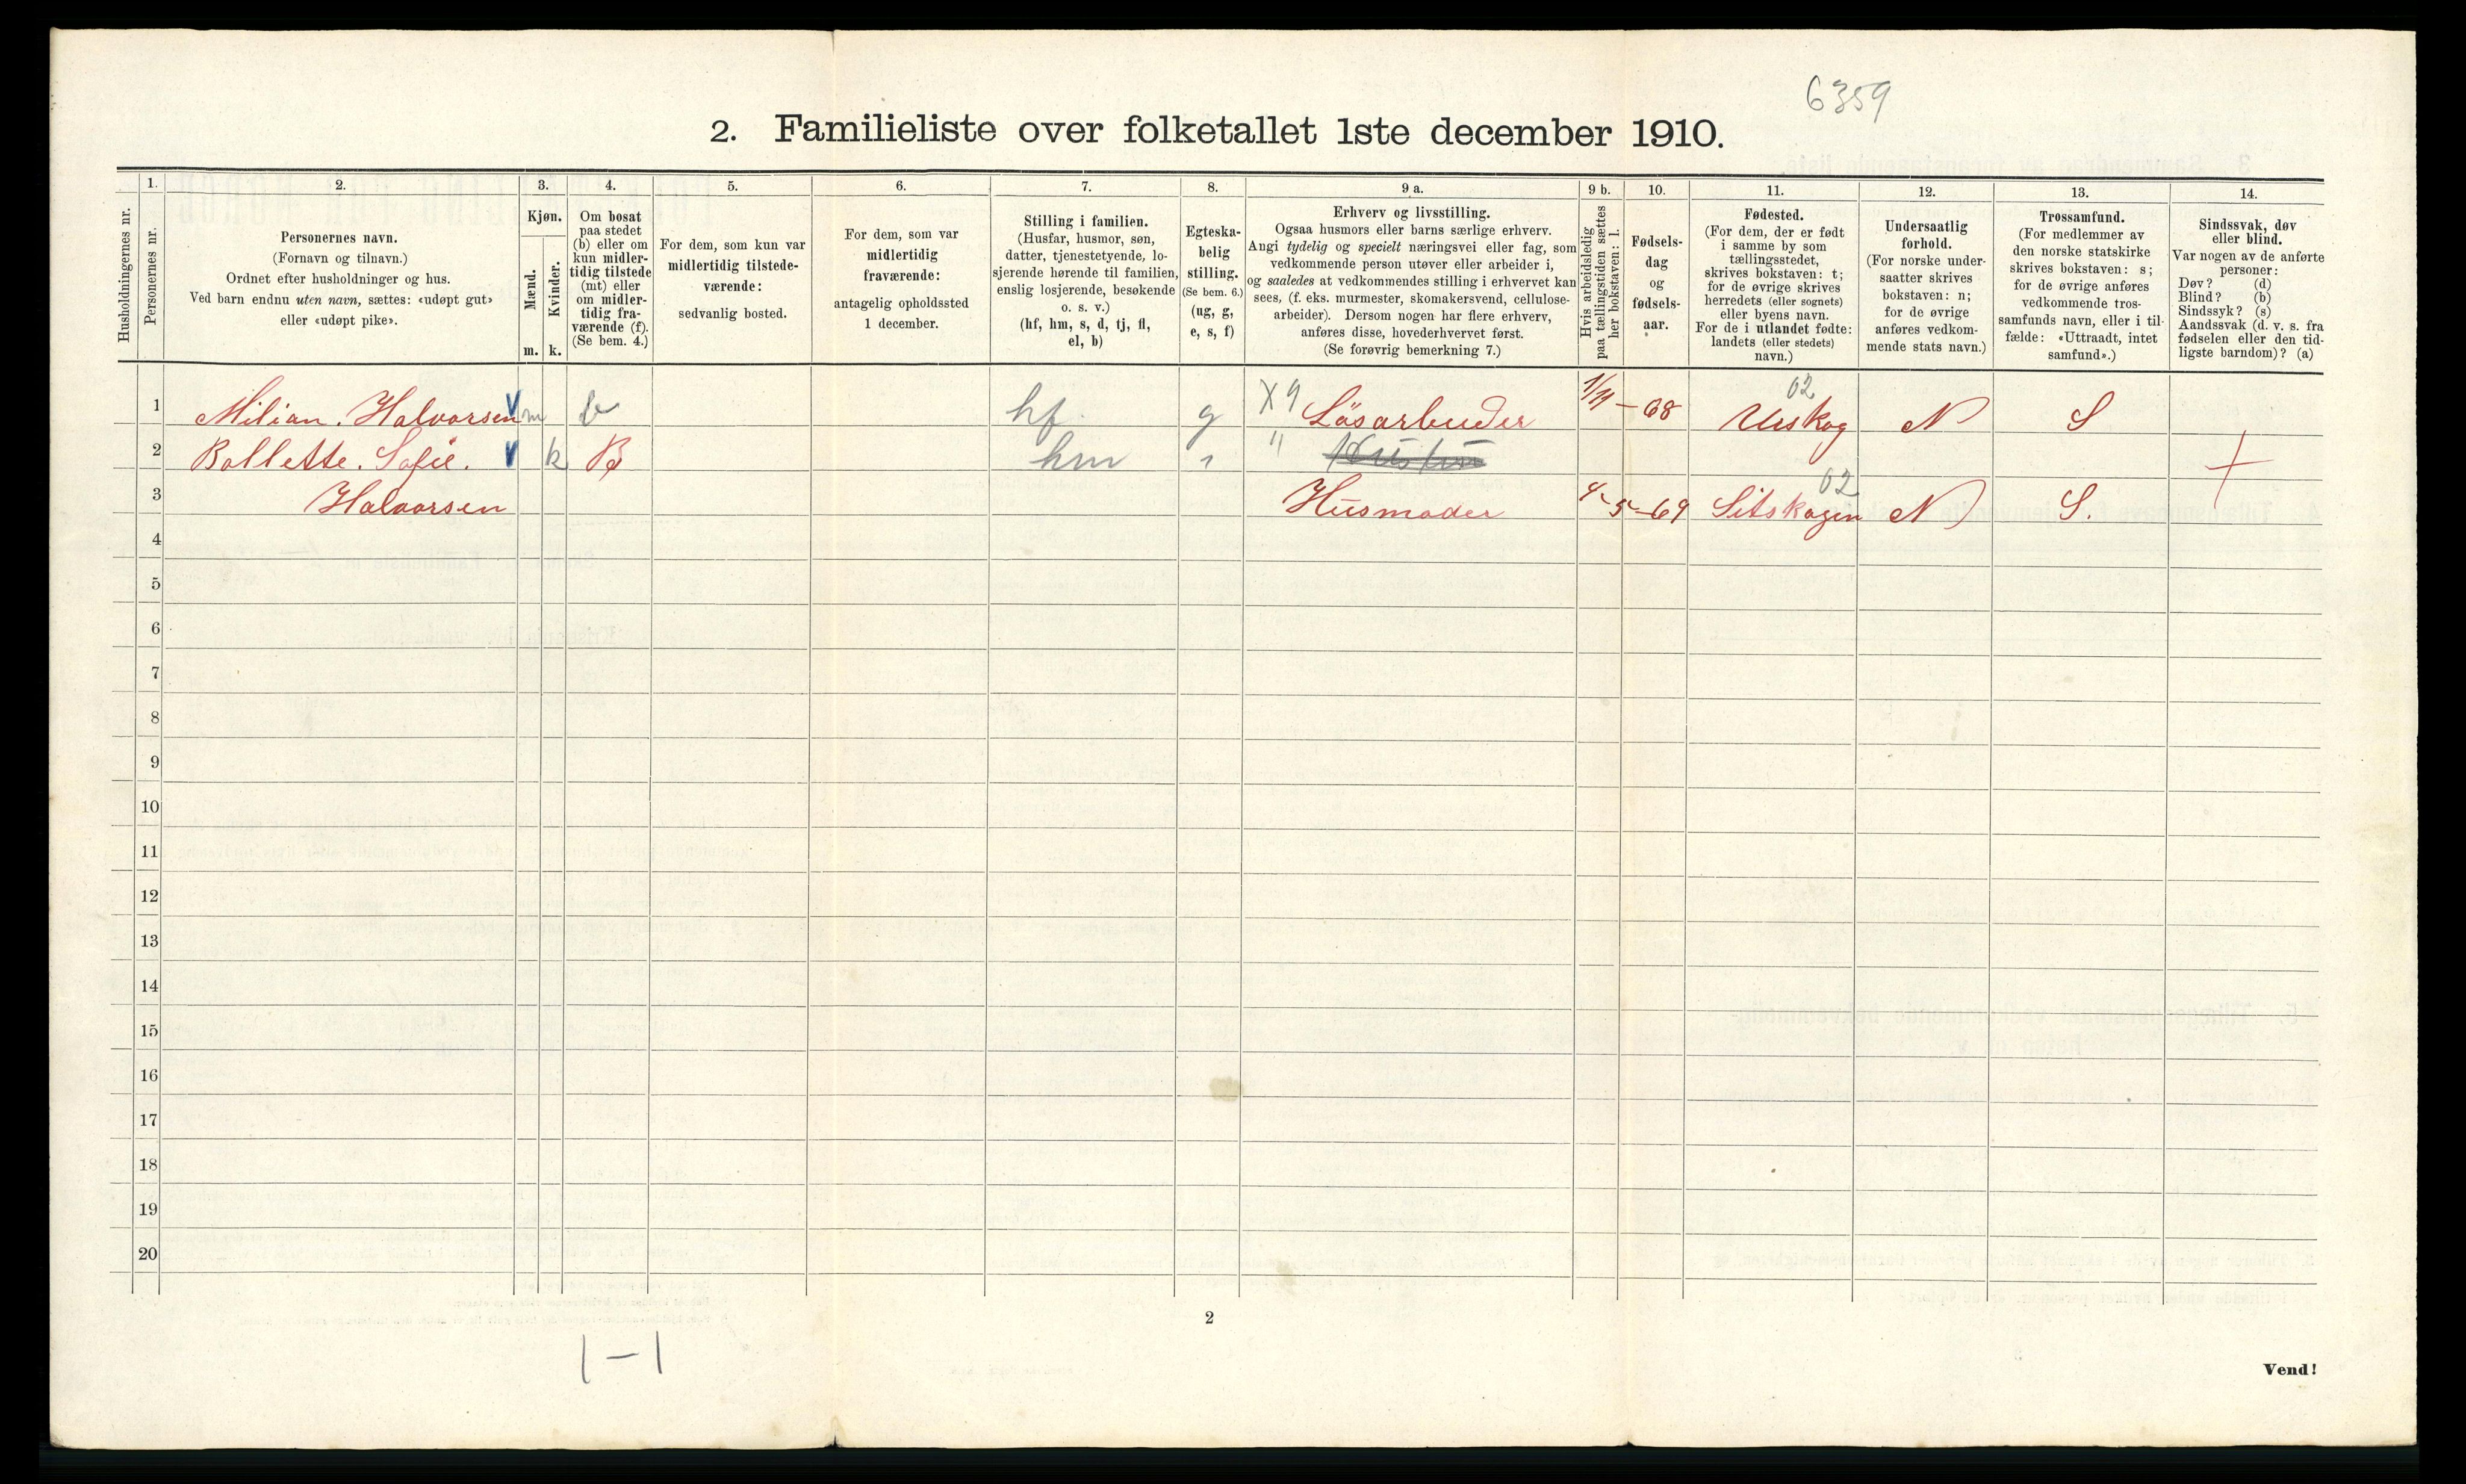 6359
2. Familieliste over folketallet 1ste december 1910.
Husholdningernes nr.
1.
Personernes nr.
2.
Personernes navn.
(Fornavn og tilnavn.)
Ordnet efter husholdninger og hus.
Ved barn endnu uten navn, sættes: «udøpt gut»
eller «udøpt pike».
3.
Kjøn.
Mænd.
Kvinder.
m. k.
4.
Om bosat
paa stedet
(b) eller om
kun midler-
tidig tilstede
(mt) eller
om midler-
tidig fra-
værende (f).
(Se bem. 4.)
5.
For dem, som kun var
midlertidig tilstede-
værende:
sedvanlig bosted.
6.
For dem, som var
midlertidig
fraværende:
antagelig opholdssted
1 december.
7.
Stilling i familien.
(Husfar, husmor, søn,
datter, tjenestetyende, lo-
sjerende hørende til familien,
enslig losjerende, besøkende
o. s. v.)
(hf, hm, s, d, tj, fl,
el, b)
8.
Egteska-
belig
stilling.
(Se bem. 6.)
(ug, g,
e, s, f)
9 a.
Erhverv og livsstilling.
Ogsaa husmors eller barns særlige erhverv.
Angi tydelig og specielt næringsvei eller fag, som
vedkommende person utøver eller arbeider i,
og saaledes at vedkommendes stilling i erhvervet kan
sees, (f. eks. murmester, skomakersvend, cellulose-
arbeider). Dersom nogen har flere erhverv,
anføres disse, hovederhvervet først.
(Se forøvrig bemerkning 7.)
9 b.
Hvis arbeidsledig
paa tællingstiden sættes
her bokstaven: l.
10.
Fødsels-
dag
og
fødsels-
aar.
11.
Fødested.
(For dem, der er født
i samme by som
tællingsstedet,
skrives bokstaven: t;
for de øvrige skrives
herredets (eller sognets)
eller byens navn.
For de i utlandet fødte:
landets (eller stedets)
navn.)
12.
Undersaatlig
forhold.
(For norske under-
saatter skrives
bokstaven: n;
for de øvrige
anføres vedkom-
mende stats navn.)
13.
Trossamfund.
(For medlemmer av
den norske statskirke
skrives bokstaven: s;
for de øvrige anføres
vedkommende tros-
samfunds navn, eller i til-
fælde: «Uttraadt, intet
samfund».)
14.
Sindssvak, døv
eller blind.
Var nogen av de anførte
personer:
Døv? (d)
Blind? (b)
Sindssyk? (s)
Aandssvak (d. v. s. fra
fødselen eller den tid-
ligste barndom)? (a)
1 Milian. Halvorsen m b hf g X9 Lösarbuder 1/11 - 68 02 Urskog N S
2 Bollette. Sofie. k B hm " "
3 Halvorsen Husmoder 4-5-69 02 Sitskogen N S.
4
5
6
7
8
9
10
11
12
13
14
15
16
17
18
19
20
2
1-1
Vend!